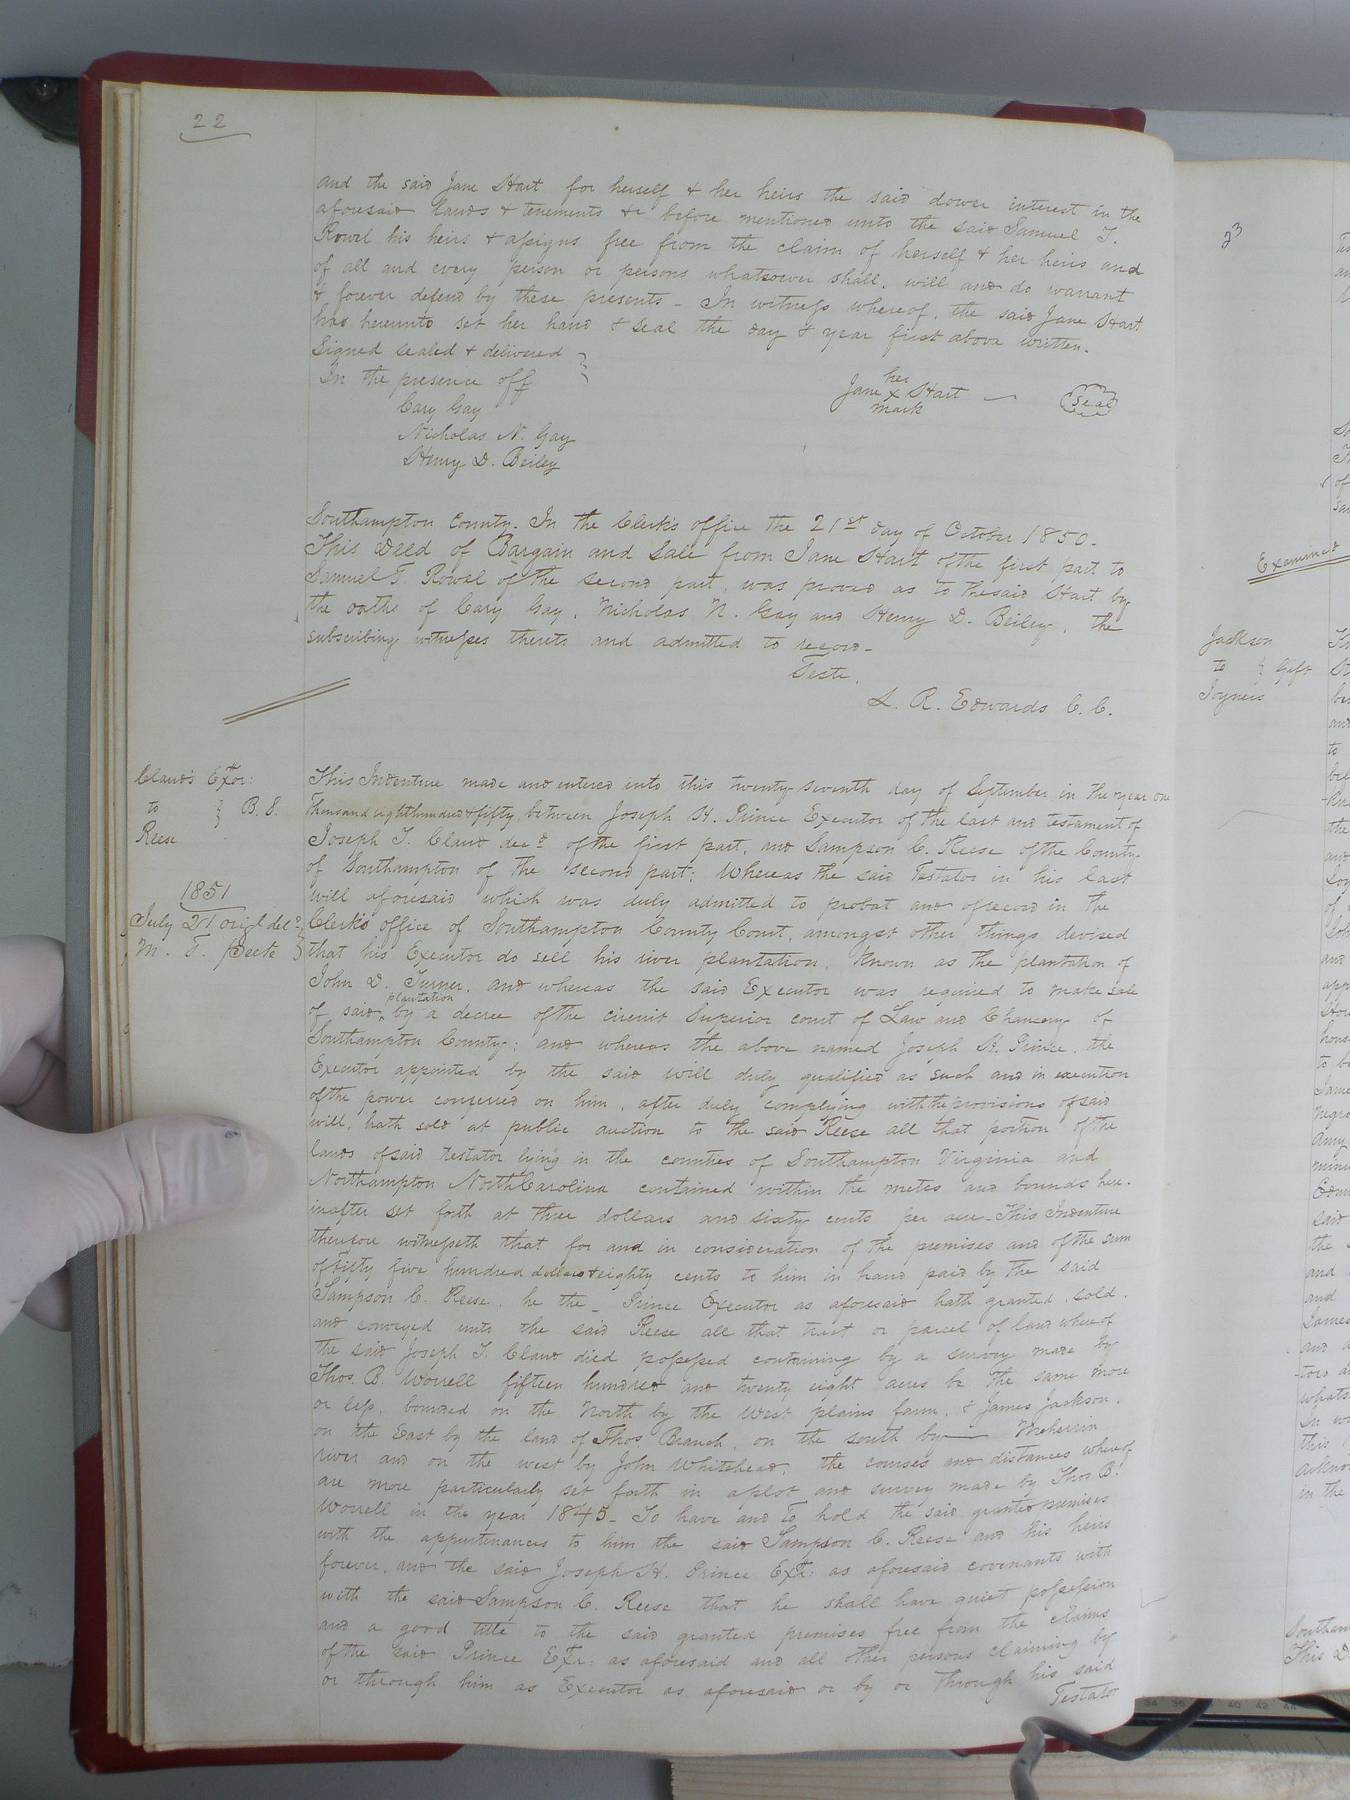 22
and the said Jane Hart for herself & her heirs the said dower interest in the
aforesaid lands & tenements &c before mentioned unto the said Samuel T.
Rowel his heirs & assigns free from the claim of herself & her heirs and
of all and every person or persons whatsoever shall, will and do warrant
& forever defend by these presents - In witness whereof, the said Jane Hart
has hereunto set her hand & seal the day & year first above written.
Signed sealed & delivered
In the presence off
her
Jane x Hart
mark
Seal
Cary Gay
Nicholas N. Gay
Henry D. Beiley
Southampton County. In the Clerk's office the 21st day of October 1850-
This Deed of Bargain and Sale from Jane Hart of the first part to
Samuel T. Rowel of the second part, was proved as to the said Hart by
the oaths of Cary Gay, Nicholas N. Gay and Henry D. Beiley, the
subscribing witnesses thereto and admitted to record-
Teste,
L. R. Edwards C. C.
Claud's Exor:
to } B. S.
Reese
1851
July 21 origl decd
M. T.
This Indenture made and entered into this twenty-seventh day of September in the year one
Thousand eight hundred & fifty, between Joseph H. Prince Executor of the last and testament of
Joseph T. Claud decd of the first part, and Sampson C. Reese of the County
of Southampton of the second part: Whereas the said Testator in his last
will aforesaid which was duly admitted to probat and of record in the
Clerk's office of Southampton County Court, amongst other things devised
that his Executor do sell his river plantation, known as the plantation of
John D. Turner, and whereas the said Executor was required to make sale
of said plantation by a decree of the circuit Superior court of Law and Chancery of
Southampton County; and whereas the above named Joseph H. Prince, the
Executor appointed by the said will duly qualified as such and in execution
of the power conferred on him, after duly complying with the provisions of said
will, hath sold at public auction to the said Reese all that portion of the
lands of said testator lying in the counties of Southampton Virginia and
Northampton North Carolina contained within the metes and bounds here-
inafter set forth at three dollars and sixty cents per acre - This Indenture
therefore witnesseth that for and in consideration of the premises and of the sum
of fifty five hundred dollars & eighty cents to him in hand paid by the said
Sampson C. Reese, he the - Prince Executor as aforesaid hath granted, sold,
and conveyed unto the said Reese all that tract or parcel of land whereof
the said Joseph T. Claud died possessed containing by a survey made by
Thos. B. Worrell fifteen hundred and twenty eight acres be the same more
or less, bounded on the North by the West plains farm, & James Jackson,
on the East by the land of Thos. Branch, on the south by Meherrin
river and on the west by John Whitehead, the courses and distances whereof
are more particularly set forth in a plot and survey made by Thos. B.
Worrell in the year 1845 - To have and To hold the said granted premises
with the appurtenances to him the said Sampson C. Reese and his heirs
forever, and the said Joseph H. Prince Exr: as aforesaid covenants with
with the said Sampson C. Reese that he shall have quiet possession
and a good title to the said granted premises free from the claims
of the said Prince Exr: as aforesaid and all other persons claiming by
or through him as Executor as aforesaid or by or through his said
Testator
23
Examined
Jackson
to } Gift
Joyners